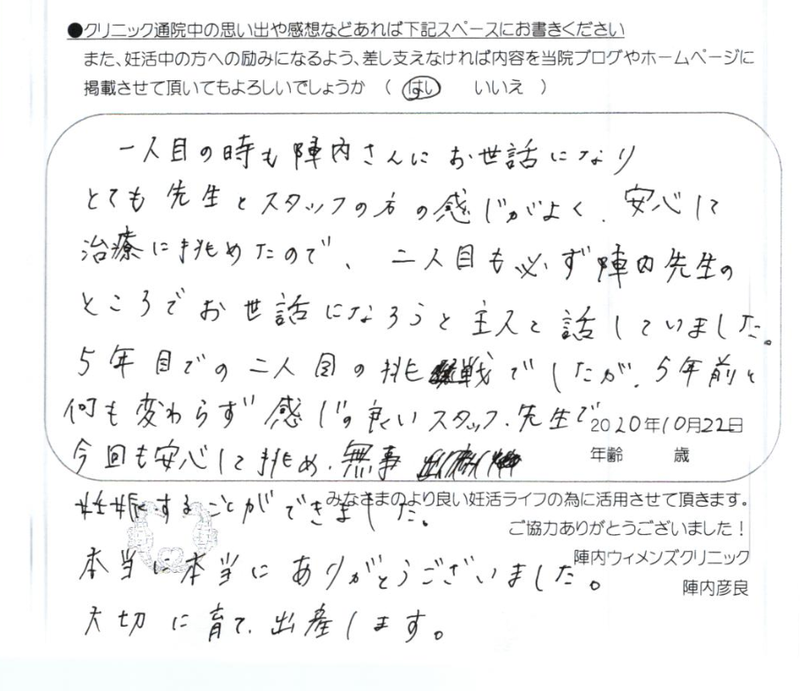 ●クリニック通院中の思い出や感想などあれば下記スペースにお書きください
また、妊活中の方への励みになるよう、差し支えなければ内容を当院ブログやホームページに
掲載させて頂いてもよろしいでしょうか ( はい いいえ )
一人目の時も陣内さんにお世話になり
とても先生とスタッフの方の感じがよく、安心して
治療に挑めたので、二人目も必ず陣内先生の
ところでお世話になろうと主人と話していました。
5年目での二人目の挑戦でしたが、5年前と
何も変わらず感じの良いスタッフ、先生で
2020年10月22日
今回も安心して挑め、無事
年齢 歳
妊娠することができました。
みなさまのより良い妊活ライフの為に活用させて頂きます。
ご協力ありがとうございました!
本当に本当にありがとうございました。
陣内ウィメンズクリニック
陣内彦良
大切に育て、出産します。